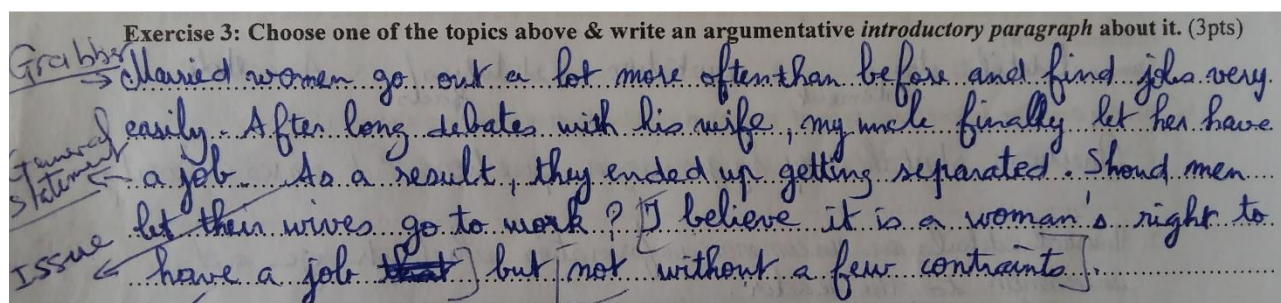 Exercise 3: Choose one of the topics above & write an argumentative introductory paragraph about it. (3pts)
Grabber Married women go out a lot more often than before and find jobs very
easily. After long debates with his wife, my uncle finally let her have
General statement a job. As a result, they ended up getting separated. Shoud men
let their wives go to work? I believe it is a woman's right to
Issue have a job but not without a few contraints.